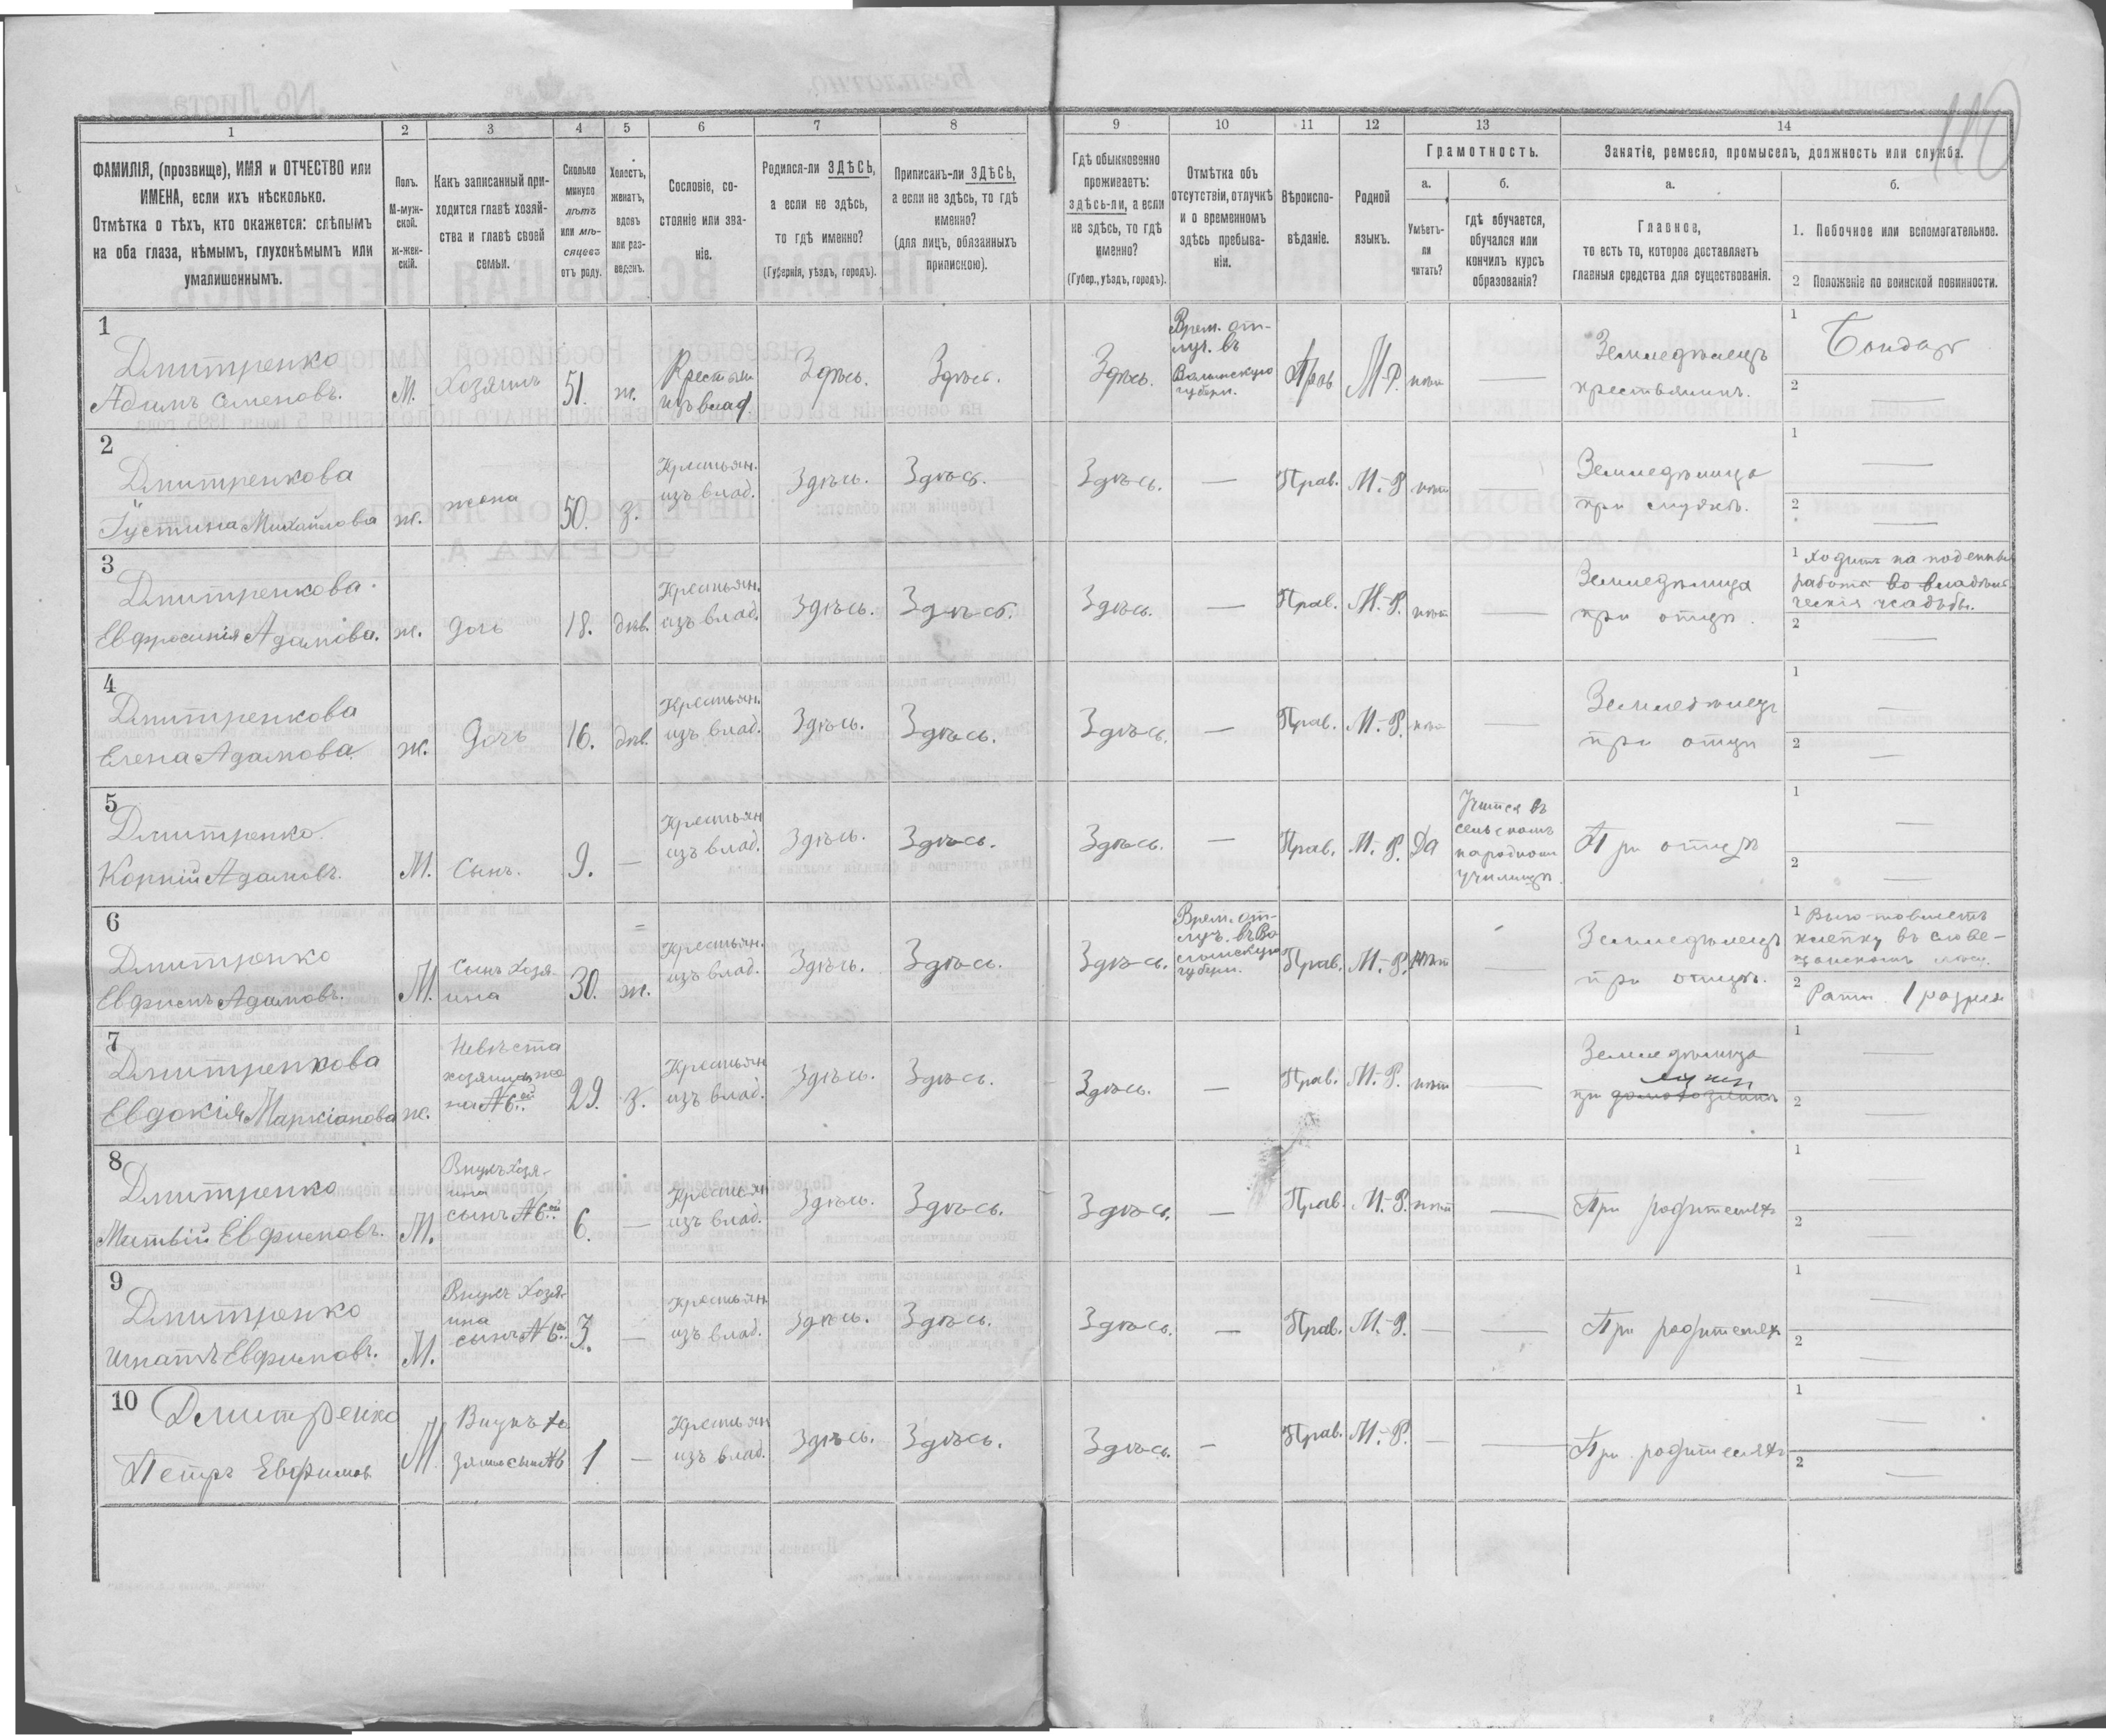 110
1 2 3 4 5 6 7 8 9 10 11 12 13 14
ФАМИЛІЯ, (прозвище), ИМЯ и ОТЧЕСТВО или
ИМЕНА, если ихъ нѣсколько.
Отмѣтка о тѣхъ, кто окажется: слѣпымъ
на оба глаза, нѣмымъ, глухонѣмымъ или
умалишеннымъ.
Полъ.
М-муж-
ской.
ж-жен-
скій.
Какъ записанный при-
ходится главѣ хозяй-
ства и главѣ своей
семьи.
Сколько
минуло
лѣтъ
или мѣ-
сяцевъ
отъ роду.
Холостъ,
женатъ,
вдовъ
или раз-
веденъ.
Сословіе, со-
стояніе или зва-
ніе.
Родился-ли ЗДѢСЬ,
а если не здѣсь,
то гдѣ именно?
(Губернія, уѣздъ, городъ).
Приписанъ-ли ЗДѢСЬ,
а если не здѣсь, то гдѣ
именно?
(для лицъ, обязанныхъ
припискою).
Гдѣ обыкновенно
проживаетъ:
здѣсь-ли, а если
не здѣсь, то гдѣ
именно?
(Губер., уѣздъ, городъ).
Отмѣтка объ
отсутствіи, отлучкѣ
и о временномъ
здѣсь пребыва-
ніи.
Вѣроиспо-
вѣданіе.
Родной
языкъ.
Грамотность.
а.
Умѣетъ-
ли
читать?
б.
гдѣ обучается,
обучался или
кончилъ курсъ
образованія?
Занятіе, ремесло, промыселъ, должность или служба.
а.
Главное,
то есть то, которое доставляетъ
главныя средства для существованія.
б.
1. Побочное или вспомогательное.
2 Положеніе по воинской повинности.
1
Дмитренко
Адамъ Семеновъ.
М.
Хозяинъ
51.
ж.
Крестьян
изъ влад.
Здѣсь.
Здѣсь.
Здѣсь.
Врем. от-
луч. въ
Волынскую
губерн.
Прав
М-Р.
нѣтъ
—
Земледѣлецъ
крестьянинъ.
1 Бондарь
2 —
2
Дмитренкова
Іустина Михайлова
ж.
жена
50.
з.
Крестьян.
изъ влад.
Здѣсь.
Здѣсь.
Здѣсь.
—
Прав.
М.-Р.
нѣтъ
—
Земледѣлица
при мужѣ.
1 —
2 —
3
Дмитренкова.
Евфросинія Адамова.
ж.
дочь
18.
дѣв.
Крестьян.
изъ влад.
Здѣсь.
Здѣсь.
Здѣсь.
—
Прав.
М.-Р.
нѣтъ
—
Земледѣлица
при отцѣ.
1 Ходитъ на поденныя
работы во владѣль
ческія усадьбы.
2 —
4
Дмитренкова
Елена Адамова.
ж.
Дочь
16.
дѣв.
Крестьян.
изъ влад.
Здѣсь.
Здѣсь.
Здѣсь.
—
Прав.
М.-Р.
нѣтъ
—
при отцѣ
1 —
2 —
5
Дмитренко.
Корній Адамовъ.
М.
Сынъ.
9.
—
Крестьян
изъ влад.
Здѣсь.
Здѣсь.
Здѣсь.
—
Прав.
М.-Р.
Да
Учится въ
сельскомъ
народном
училищѣ.
При отцѣ
1 —
2 —
6
Дмитренко
Евфимъ Адамовъ.
М.
Сынъ Хозя-
ина
30.
ж.
Крестьян.
изъ влад.
Здѣсь.
Здѣсь.
Здѣсь.
Врем. от-
луч. въ Во
лынскую
губерн.
Прав.
М.-Р.
нѣтъ
—
Земледѣлецъ
при отцѣ.
1
клепку въ слове-
2 Ратн. 1 разряд
7
Дмитренкова
Евдокія Маркіанова
ж.
Невѣста
хозяина же
на №6.ой
29.
з.
Крестьян
изъ влад.
Здѣсь.
Здѣсь.
Здѣсь.
—
Прав.
М.-Р.
нѣтъ
—
Земледѣлица
мужѣ
при домохозяинѣ
1 —
2 —
8
Дмитренко
Матвій Евфимовъ.
М.
Внукъ Хозя-
ина
сынъ №6.ой
6.
—
Крестьян
изъ влад.
Здѣсь.
Здѣсь.
Здѣсь.
—
Прав.
М.-Р.
нѣтъ
—
При родителяхъ
1 —
2 —
9
Дмитренко
Игнатъ Евфимовъ.
М.
Внукъ Хозя-
ина
сынъ №6.
3.
—
Крестьян
изъ влад.
Здѣсь.
Здѣсь.
Здѣсь.
—
Прав.
М.-Р.
—
—
При родителях
1 —
2 —
10
Дмитренко
Петръ Евфимов
М
Внукъ хо
зяина сынъ №6
1
—
Крестьян
изъ влад.
Здѣсь.
Здѣсь.
Здѣсь.
—
Прав.
М.-Р.
—
—
При родителяхъ
1 —
2 —